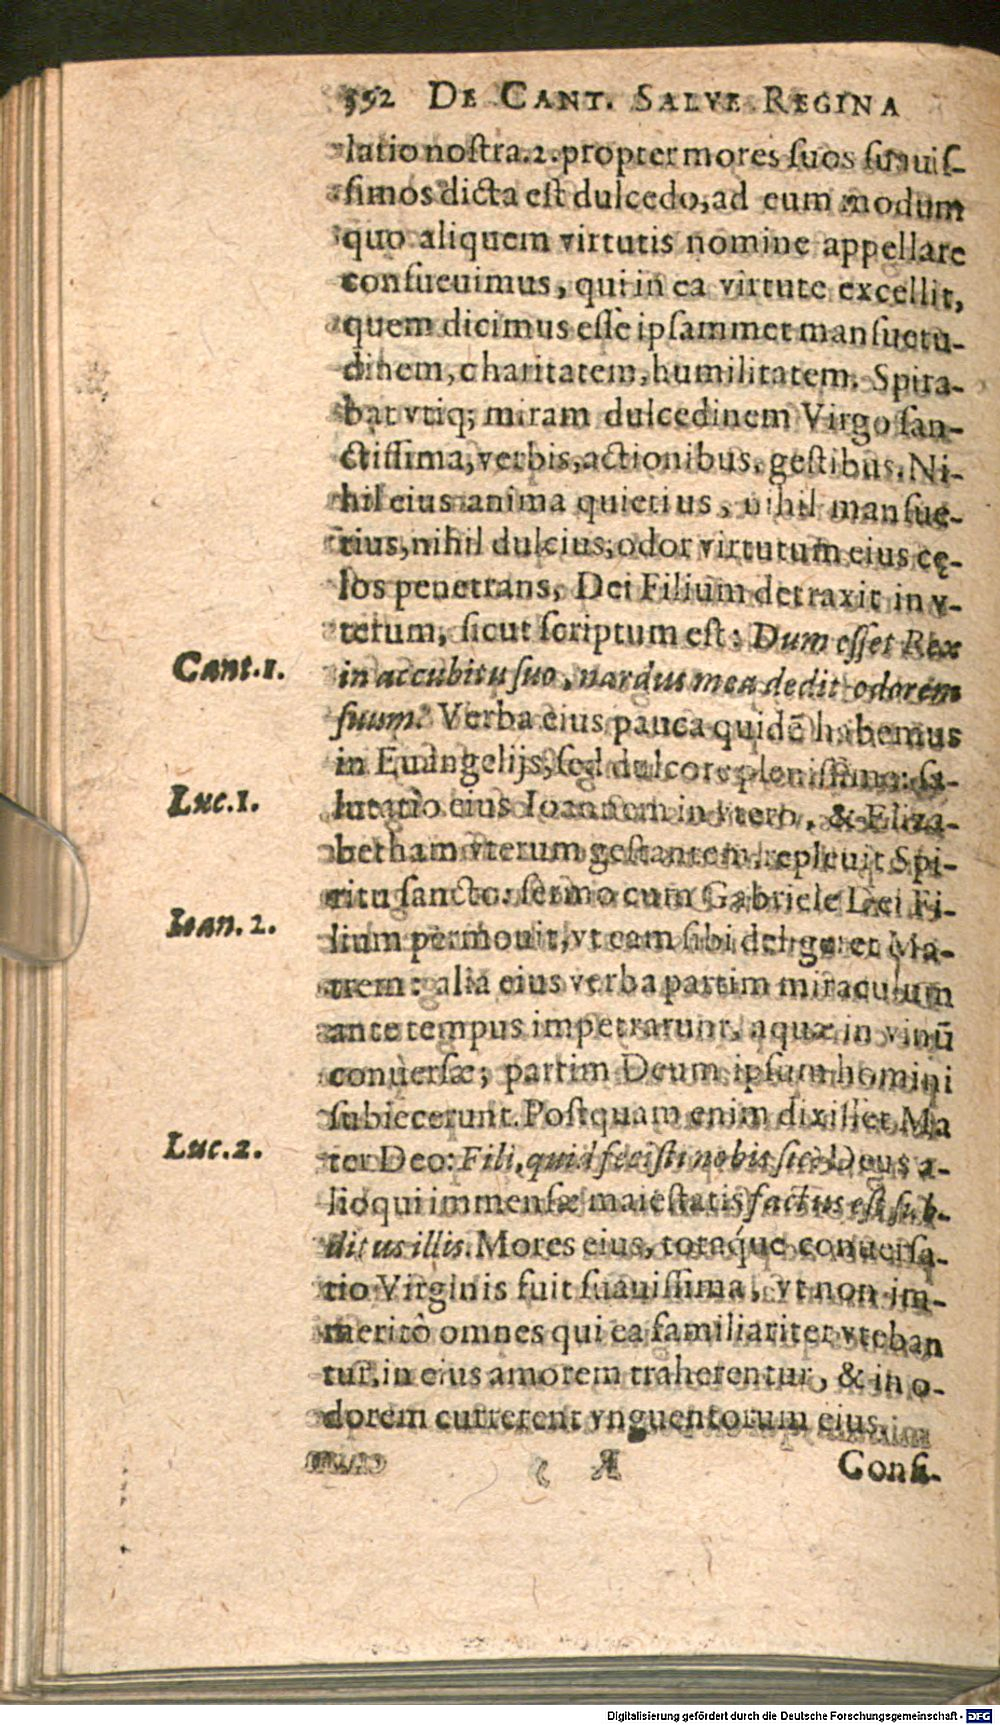 592 DE CANT. SALVE REGINA
latio nostra. 2. propter mores suos suauis-
simos dicta est dulcedo, ad eum modum
quo aliquem virtutis nomine appellare
consueuimus, qui in ea virtute excellit,
quem dicimus esse ipsammet mansuetu-
dinem, charitatem, humilitatem. Spira-
bat vtiq; miram dulcedinem Virgo san-
ctissima, verbis, actionibus, gestibus. Ni-
hil eius anima quietius, nihil mansue-
tius, nihil dulcius, odor virtutum eius cę-
los penetrans, Dei Filium detraxit in v-
terum, sicut scriptum est: Dum esset Rex
Cant. 1.
in accubitu suo, nardus mea dedit odorem
suum. Verba eius pauca quidē habemus
in Euangelijs, sed dulcore plenissima: sa-
Luc. 1.
lutatio eius Ioannem in vtero, & Eliza-
betham vterum gestantem repleuit Spi-
ritu sancto: sermo cum Gabriele Dei Fi-
Ioan. 2.
lium permouit, vt eam sibi deligeret Ma-
trem: alia eius verba partim miraculum
ante tempus impetrarunt, aquæ in vinū
conuersæ; partim Deum ipsum homini
subiecerunt. Postquam enim dixisset Ma
Luc. 2.
ter Deo: Fili, quid fecisti nobis sic? Deus a-
lioqui immensæ maiestatis factus est sub-
ditus illis. Mores eius, totaq́ue conuersa-
tio Virginis fuit suauissima, vt non im-
meritò omnes qui ea familiariter vteban
tur, in eius amorem traherentur, & in o-
dorem currerent vnguentorum eius.
Consi-
Digitalisierung gefördert durch die Deutsche Forschungsgemeinschaft - DFG